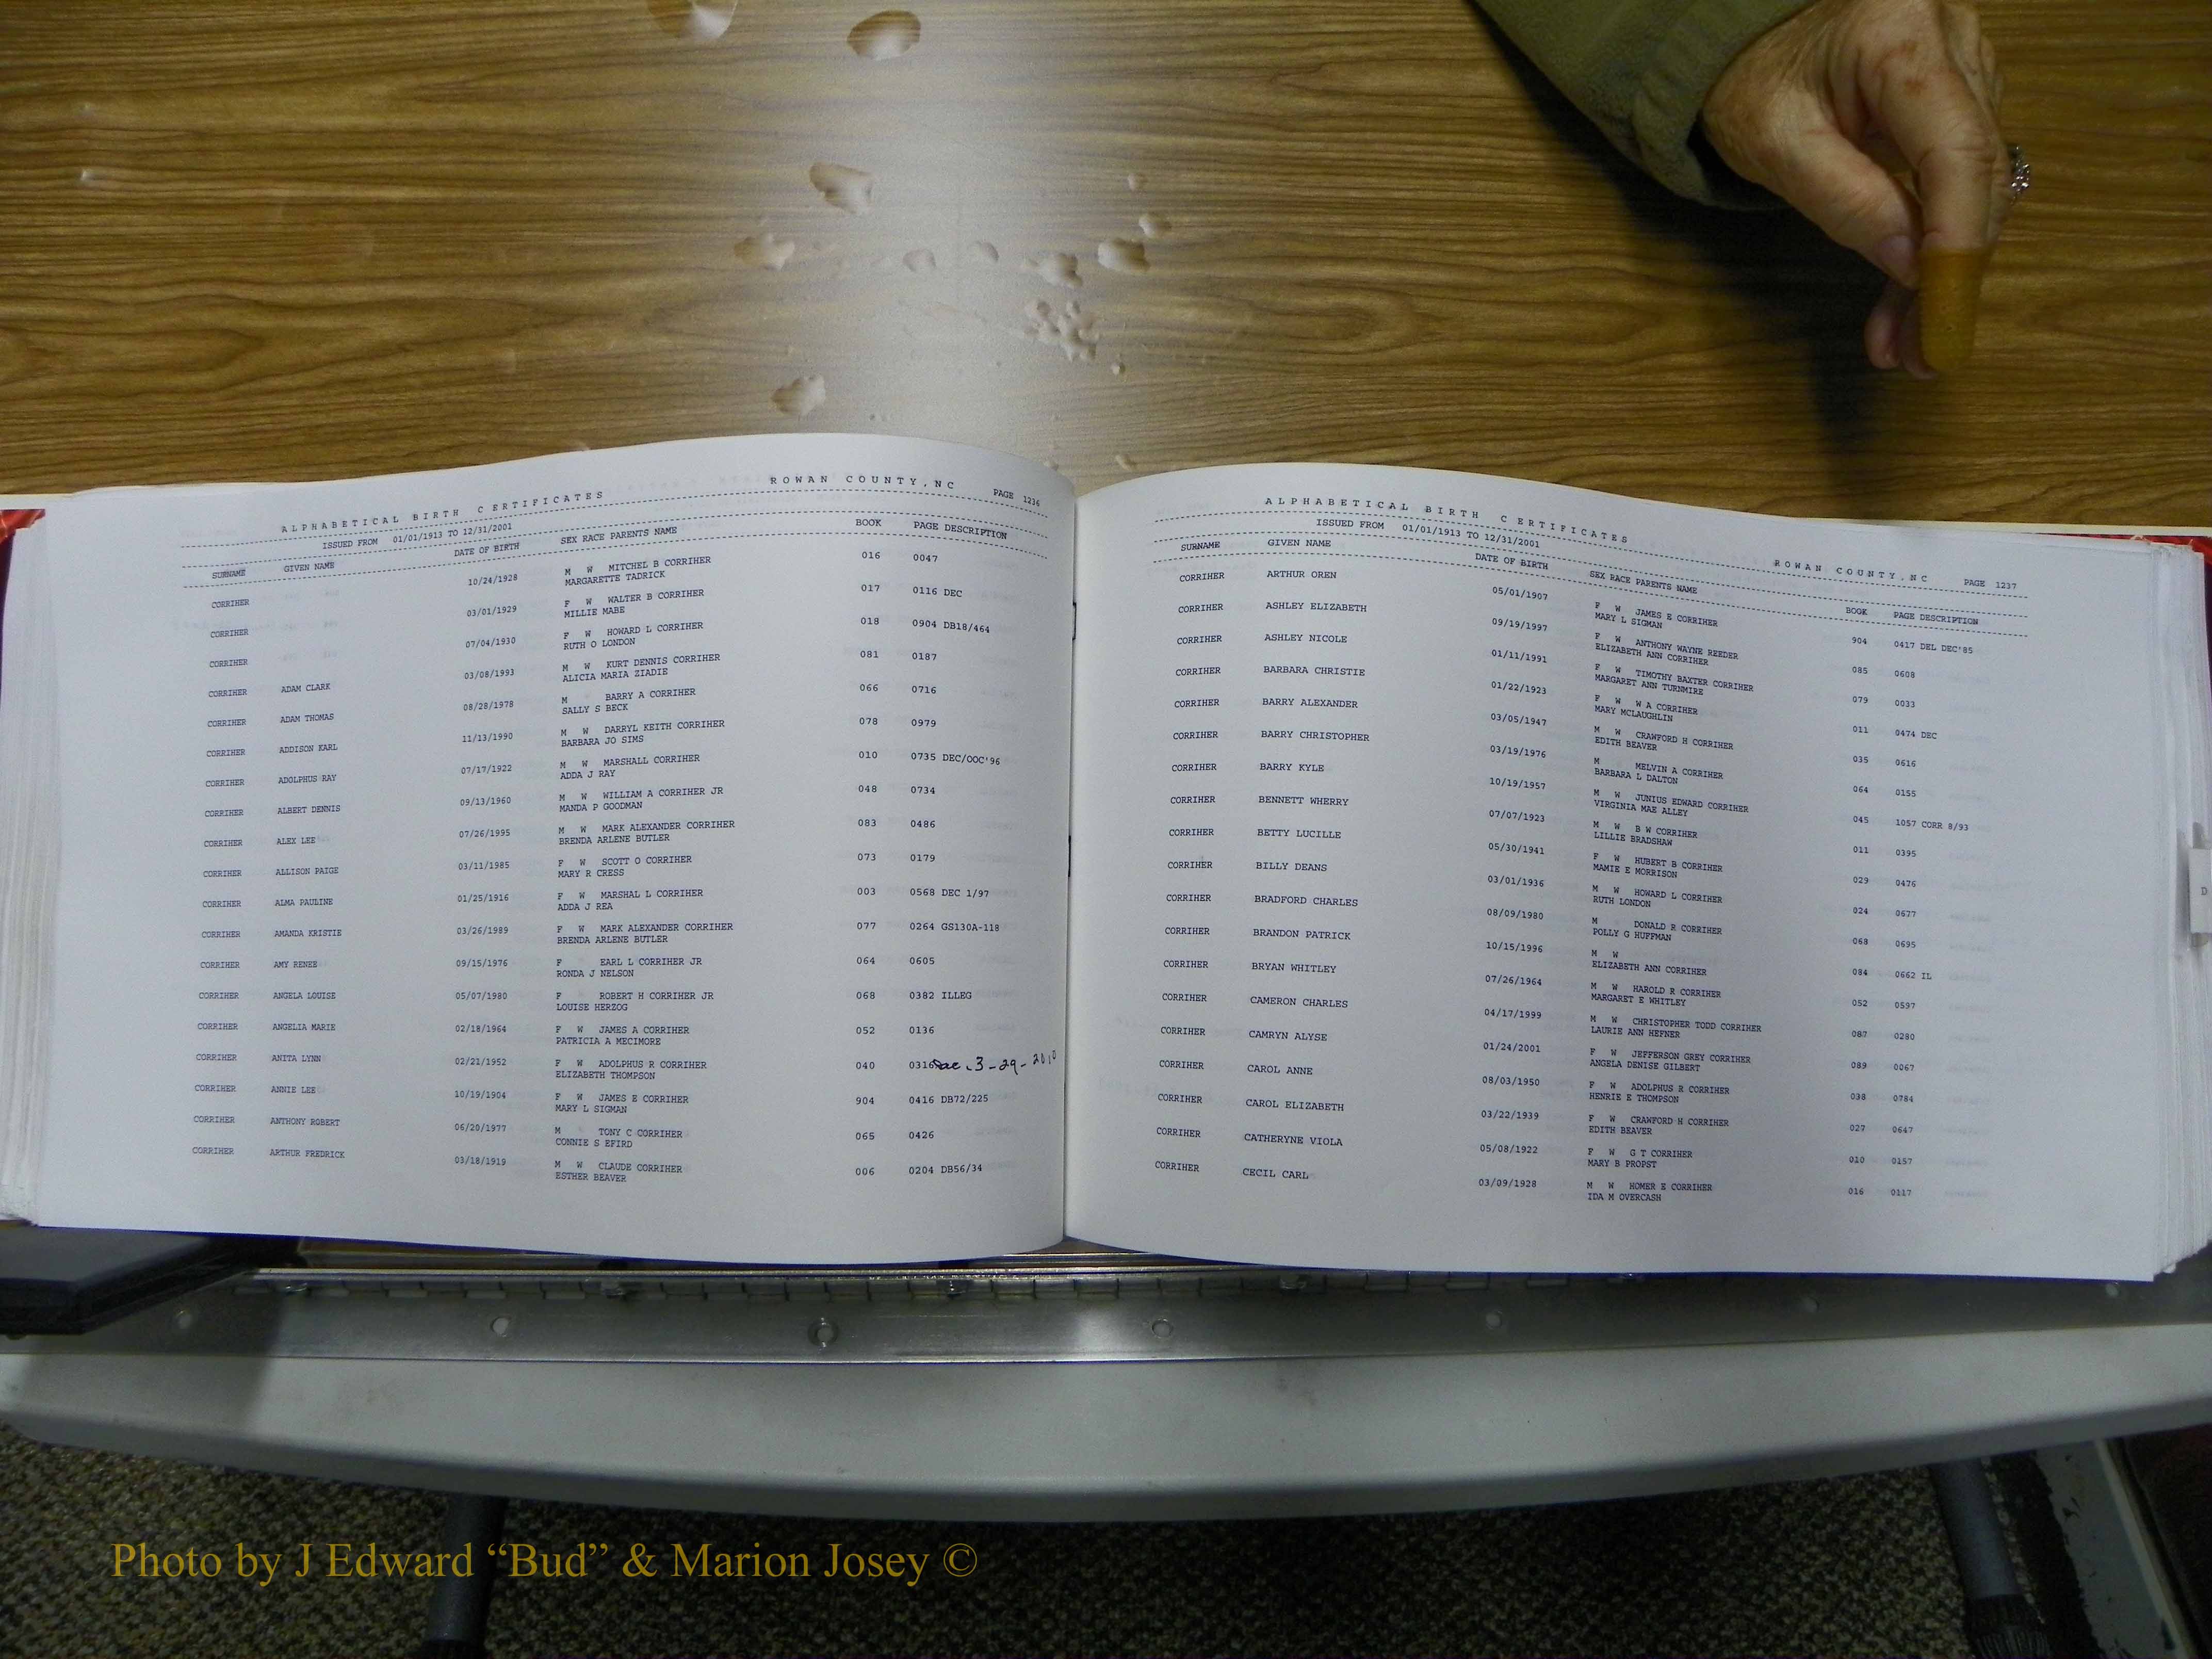 ALPHABETICAL BIRTH CERTIFICATES ROWAN COUNTY,NC PAGE 1236
ISSUED FROM 01/01/1913 TO 12/31/2001
SURNAME GIVEN NAME DATE OF BIRTH SEX RACE PARENTS NAME BOOK PAGE DESCRIPTION
CORRIHER 10/24/1928 M W MITCHEL B CORRIHER 016 0047
MARGARETTE TADRICK
CORRIHER 03/01/1929 F W WALTER B CORRIHER 017 0116 DEC
MILLIE MABE
CORRIHER 07/04/1930 F W HOWARD L CORRIHER 018 0904 DB18/464
RUTH O LONDON
CORRIHER ADAM CLARK 03/08/1993 M W KURT DENNIS CORRIHER 081 0187
ALICIA MARIA ZIADIE
CORRIHER ADAM THOMAS 08/28/1978 M BARRY A CORRIHER 066 0716
SALLY S BECK
CORRIHER ADDISON KARL 11/13/1990 M W DARRYL KEITH CORRIHER 078 0979
BARBARA JO SIMS
CORRIHER ADOLPHUS RAY 07/17/1922 M W MARSHALL CORRIHER 010 0735 DEC/OOC'96
ADDA J RAY
CORRIHER ALBERT DENNIS 09/13/1960 M W WILLIAM A CORRIHER JR 048 0734
MANDA P GOODMAN
CORRIHER ALEX LEE 07/26/1995 M W MARK ALEXANDER CORRIHER 083 0486
BRENDA ARLENE BUTLER
CORRIHER ALLISON PAIGE 03/11/1985 F W SCOTT O CORRIHER 073 0179
MARY R CRESS
CORRIHER ALMA PAULINE 01/25/1916 F W MARSHAL L CORRIHER 003 0568 DEC 1/97
ADDA J REA
CORRIHER AMANDA KRISTIE 03/26/1989 F W MARK ALEXANDER CORRIHER 077 0264 GS130A-118
BRENDA ARLENE BUTLER
CORRIHER AMY RENEE 09/15/1976 F EARL L CORRIHER JR 064 0605
RONDA J NELSON
CORRIHER ANGELA LOUISE 05/07/1980 F ROBERT H CORRIHER JR 068 0382 ILLEG
LOUISE HERZOG
CORRIHER ANGELIA MARIE 02/18/1964 F W JAMES A CORRIHER 052 0136
PATRICIA A MECIMORE
CORRIHER ANITA LYNN 02/21/1952 F W ADOLPHUS R CORRIHER 040 0316 Dec. 3-29-2010
ELIZABETH THOMPSON
CORRIHER ANNIE LEE 10/19/1904 F W JAMES E CORRIHER 904 0416 DB72/225
MARY L SIGMAN
CORRIHER ANTHONY ROBERT 06/20/1977 M TONY C CORRIHER 065 0426
CONNIE S EFIRD
CORRIHER ARTHUR FREDRICK 03/18/1919 M W CLAUDE CORRIHER 006 0204 DB56/34
ESTHER BEAVER
ALPHABETICAL BIRTH CERTIFICATES ROWAN COUNTY,NC PAGE 1237
ISSUED FROM 01/01/1913 TO 12/31/2001
SURNAME GIVEN NAME DATE OF BIRTH SEX RACE PARENTS NAME BOOK PAGE DESCRIPTION
CORRIHER ARTHUR OREN 05/01/1907 F W JAMES E CORRIHER 904 0417 DEL DEC'85
MARY L SIGMAN
CORRIHER ASHLEY ELIZABETH 09/19/1997 F W ANTHONY WAYNE REEDER 085 0608
ELIZABETH ANN CORRIHER
CORRIHER ASHLEY NICOLE 01/11/1991 F W TIMOTHY BAXTER CORRIHER 079 0033
MARGARET ANN TURNMIRE
CORRIHER BARBARA CHRISTIE 01/22/1923 F W W A CORRIHER 011 0474 DEC
MARY MCLAUGHLIN
CORRIHER BARRY ALEXANDER 03/05/1947 M W CRAWFORD H CORRIHER 035 0616
EDITH BEAVER
CORRIHER BARRY CHRISTOPHER 03/19/1976 M MELVIN A CORRIHER 064 0155
BARBARA L DALTON
CORRIHER BARRY KYLE 10/19/1957 M W JUNIUS EDWARD CORRIHER 045 1057 CORR 8/93
VIRGINIA MAE ALLEY
CORRIHER BENNETT WHERRY 07/07/1923 M W B W CORRIHER 011 0395
LILLIE BRADSHAW
CORRIHER BETTY LUCILLE 05/30/1941 F W HUBERT B CORRIHER 029 0476
MAMIE E MORRISON
CORRIHER BILLY DEANS 03/01/1936 M W HOWARD L CORRIHER 024 0677
RUTH LONDON
CORRIHER BRADFORD CHARLES 08/09/1980 M DONALD R CORRIHER 068 0695
POLLY G HUFFMAN
CORRIHER BRANDON PATRICK 10/15/1996 M W 084 0662 IL
ELIZABETH ANN CORRIHER
CORRIHER BRYAN WHITLEY 07/26/1964 M W HAROLD R CORRIHER 052 0597
MARGARET E WHITLEY
CORRIHER CAMERON CHARLES 04/17/1999 M W CHRISTOPHER TODD CORRIHER 087 0280
LAURIE ANN HEFNER
CORRIHER CAMRYN ALYSE 01/24/2001 F W JEFFERSON GREY CORRIHER 089 0067
ANGELA DENISE GILBERT
CORRIHER CAROL ANNE 08/03/1950 F W ADOLPHUS R CORRIHER 038 0784
HENRIE E THOMPSON
CORRIHER CAROL ELIZABETH 03/22/1939 F W CRAWFORD H CORRIHER 027 0647
EDITH BEAVER
CORRIHER CATHERYNE VIOLA 05/08/1922 F W G T CORRIHER 010 0157
MARY B PROPST
CORRIHER CECIL CARL 03/09/1928 M W HOMER E CORRIHER 016 0117
IDA M OVERCASH
D
Photo by J Edward “Bud” & Marion Josey ©